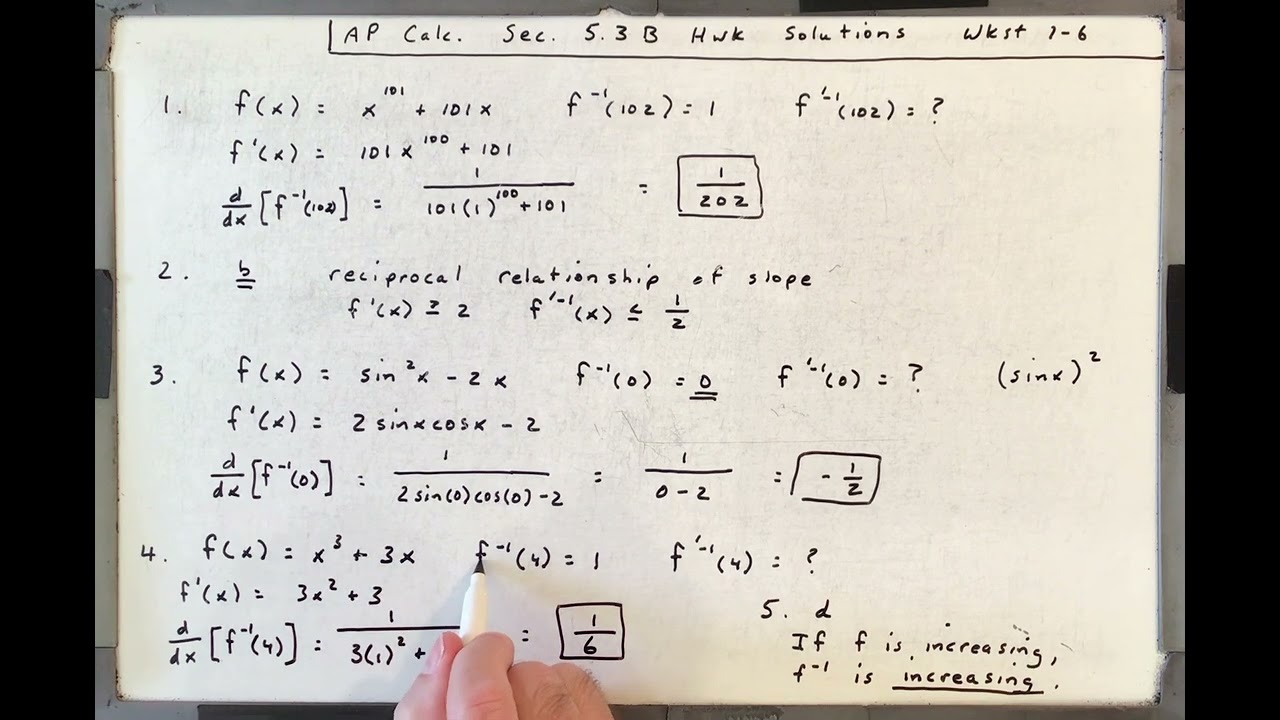 AP Calc. Sec. 5.3 B Hwk Solutions Wkst 1-6
1. f(x) = x^101 + 101x f^-1(102) = 1 f'^-1(102) = ?
f'(x) = 101x^100 + 101
d/dx [f^-1(102)] = 1/(101(1)^100 + 101) = 1/202
2. b reciprocal relationship of slope
f'(x) ≥ 2 f'^-1(x) ≤ 1/2
3. f(x) = sin^2x - 2x f^-1(0) = 0 f'^-1(0) = ? (sinx)^2
f'(x) = 2sinxcosx - 2
d/dx [f^-1(0)] = 1/(2sin(0)cos(0) - 2) = 1/(0 - 2) = -1/2
4. f(x) = x^3 + 3x f^-1(4) = 1 f'^-1(4) = ?
f'(x) = 3x^2 + 3
d/dx [f^-1(4)] = 1/(3(1)^2 + = 1/6
5. d
If f is increasing,
f^-1 is increasing.